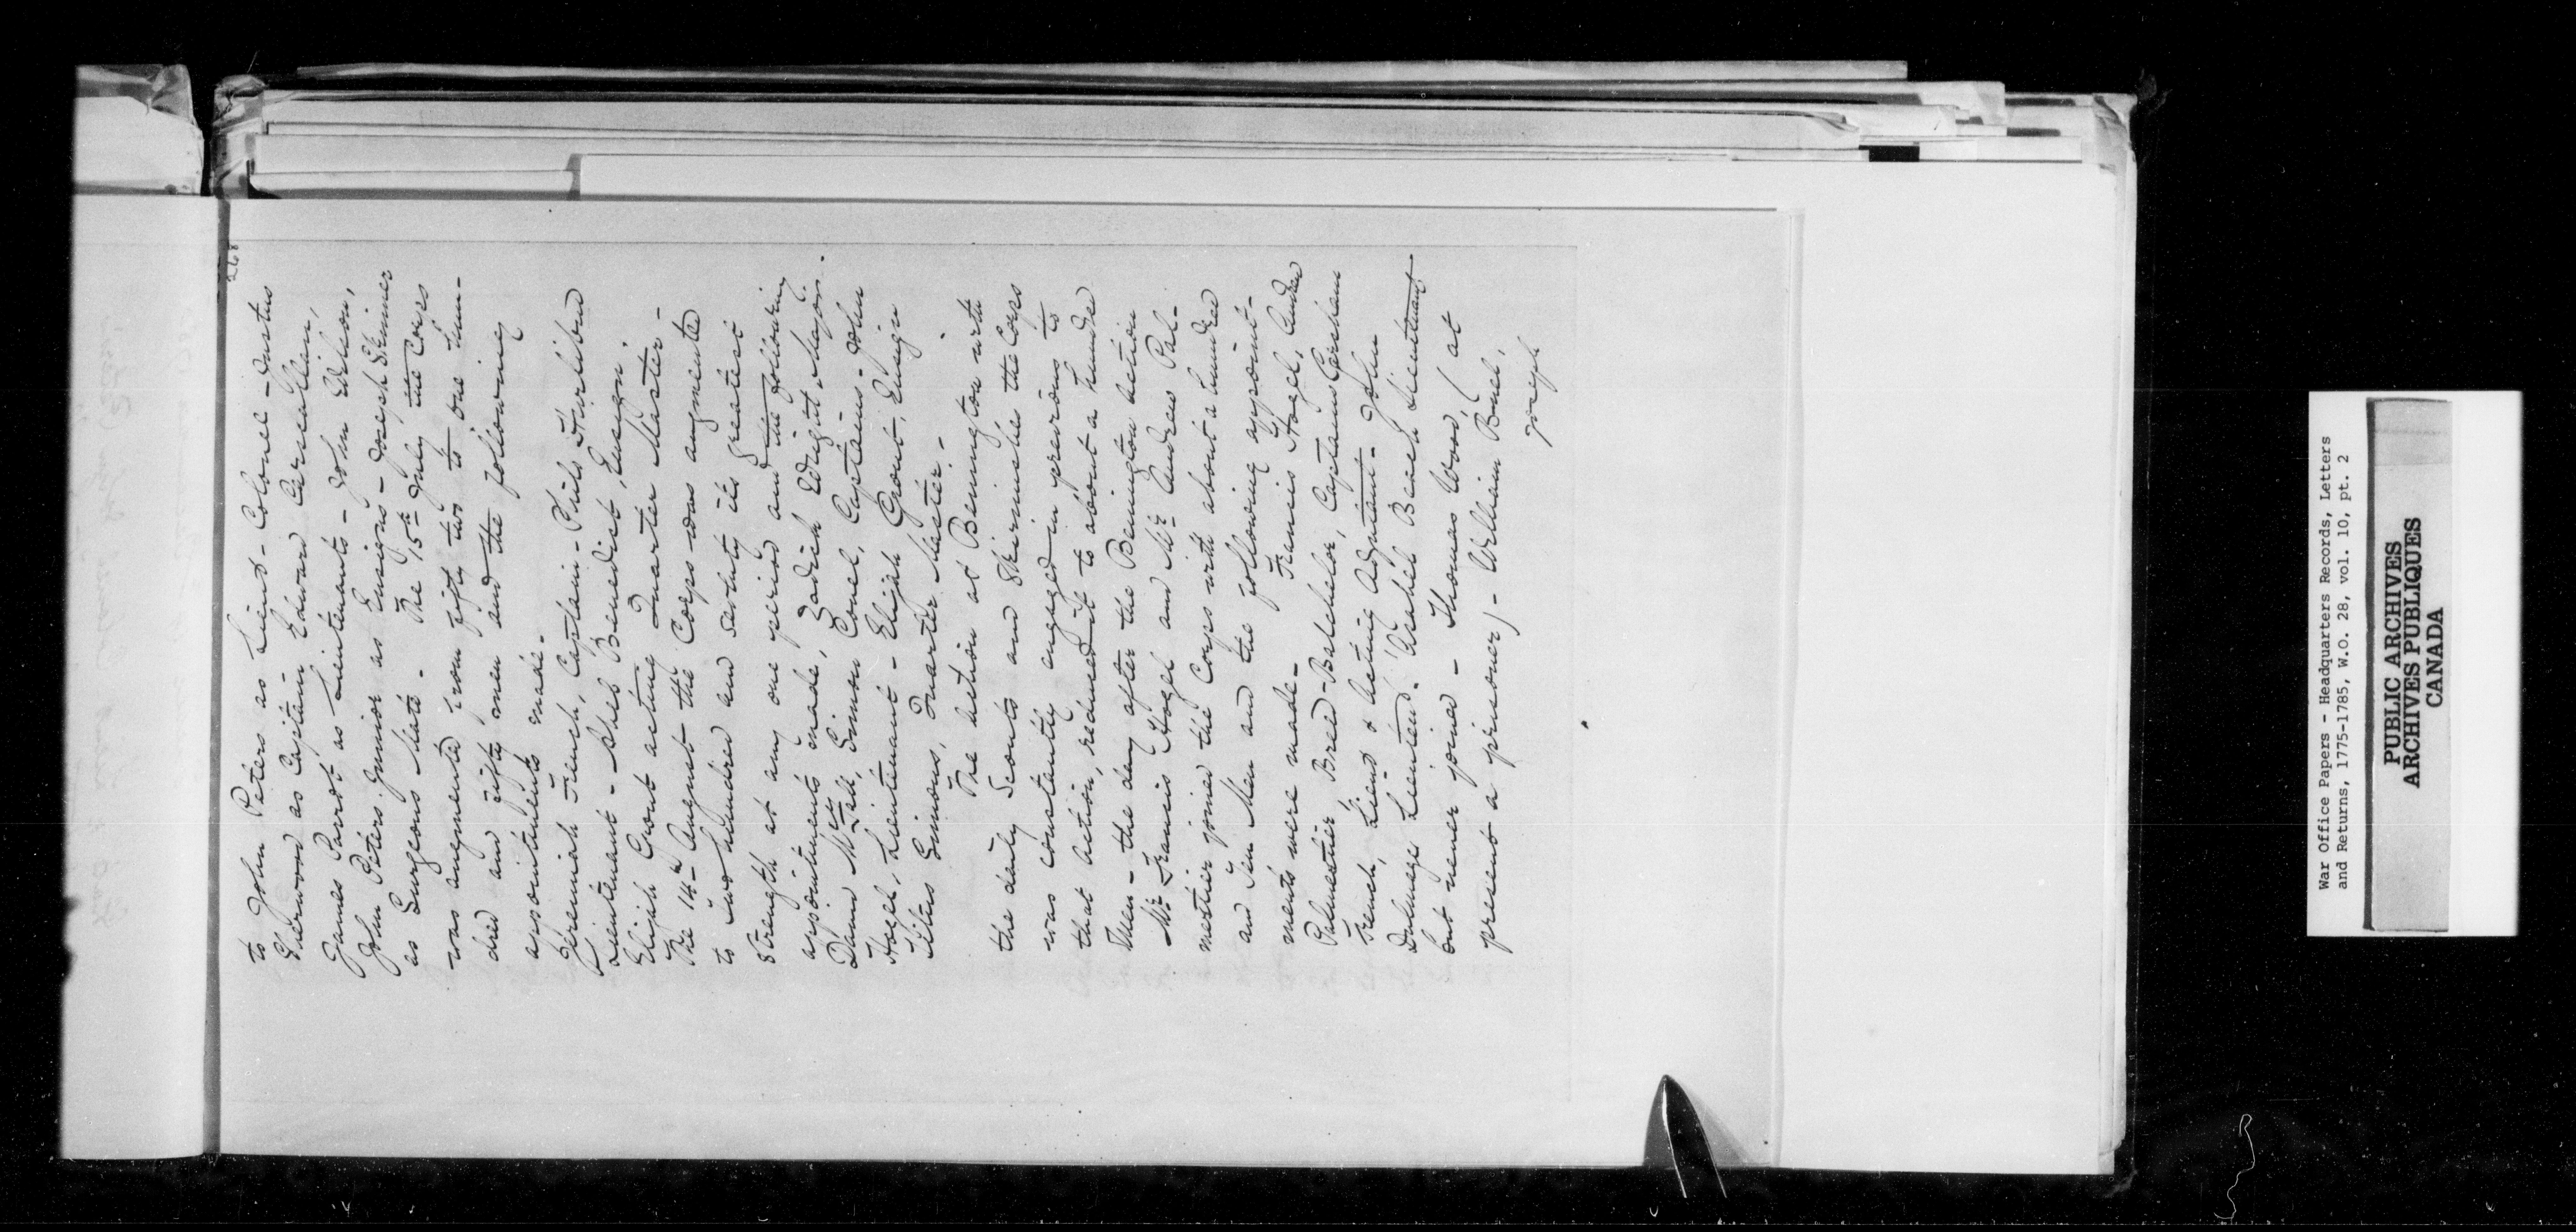 268
to John Peters as Lieut- Colonel - Justus
Sherwood as Captain - Edward Carscallien,
James Parrot as Lieutenants - John Wilson,
John Peters Junior as Ensigns - Joseph Skinner
as Surgeons Mate - The 15th July the Corps
was augmented from fifty two to one hun-
dred and fifty men and the following
appointments made -
Jeremiah French, Captain - Phils Hurlibow
Lieutenant - Shel Benedict, Ensign -
Elijah Grout acting Quarter Master -
The 14th August the Corps was augmented
to two hundred and seventy its greatest
strength at any one period and the following
appointments made, Zadick Wright, Major -
David McFall, Simon Covel, Captains - John
Hogel, Lieutenant - Elijah Grout, Ensign
Titus Simons, Quarter Master -
The Action at Bennington with
the daily Scouts and Skirmishes the Corps
was constantly engaged in previous to
that Action, reduced it to about a hundred
Men - the day after the Bennington Action
Mr Francis Hogel and Mr Andrew Pal-
mestier joined the Corps with about a hundred
and Ten Men and the following appoint-
ments were made - Francis Hogel, Andrew
Palmestier, Breed Batchelor, Captains Gershom
French, Lieut & Acting Adjutant - John
Dulmage Lieuten'd - Asahel Beach Lieutenant
but never joined - Thomas Wood, (at
present a prisoner) - William Buel,
Joseph
War Office Papers - Headquarters Records, Letters
and Returns, 1775-1785, W.O. 28, vol. 10, pt. 2
PUBLIC ARCHIVES
ARCHIVES PUBLIQUES
CANADA